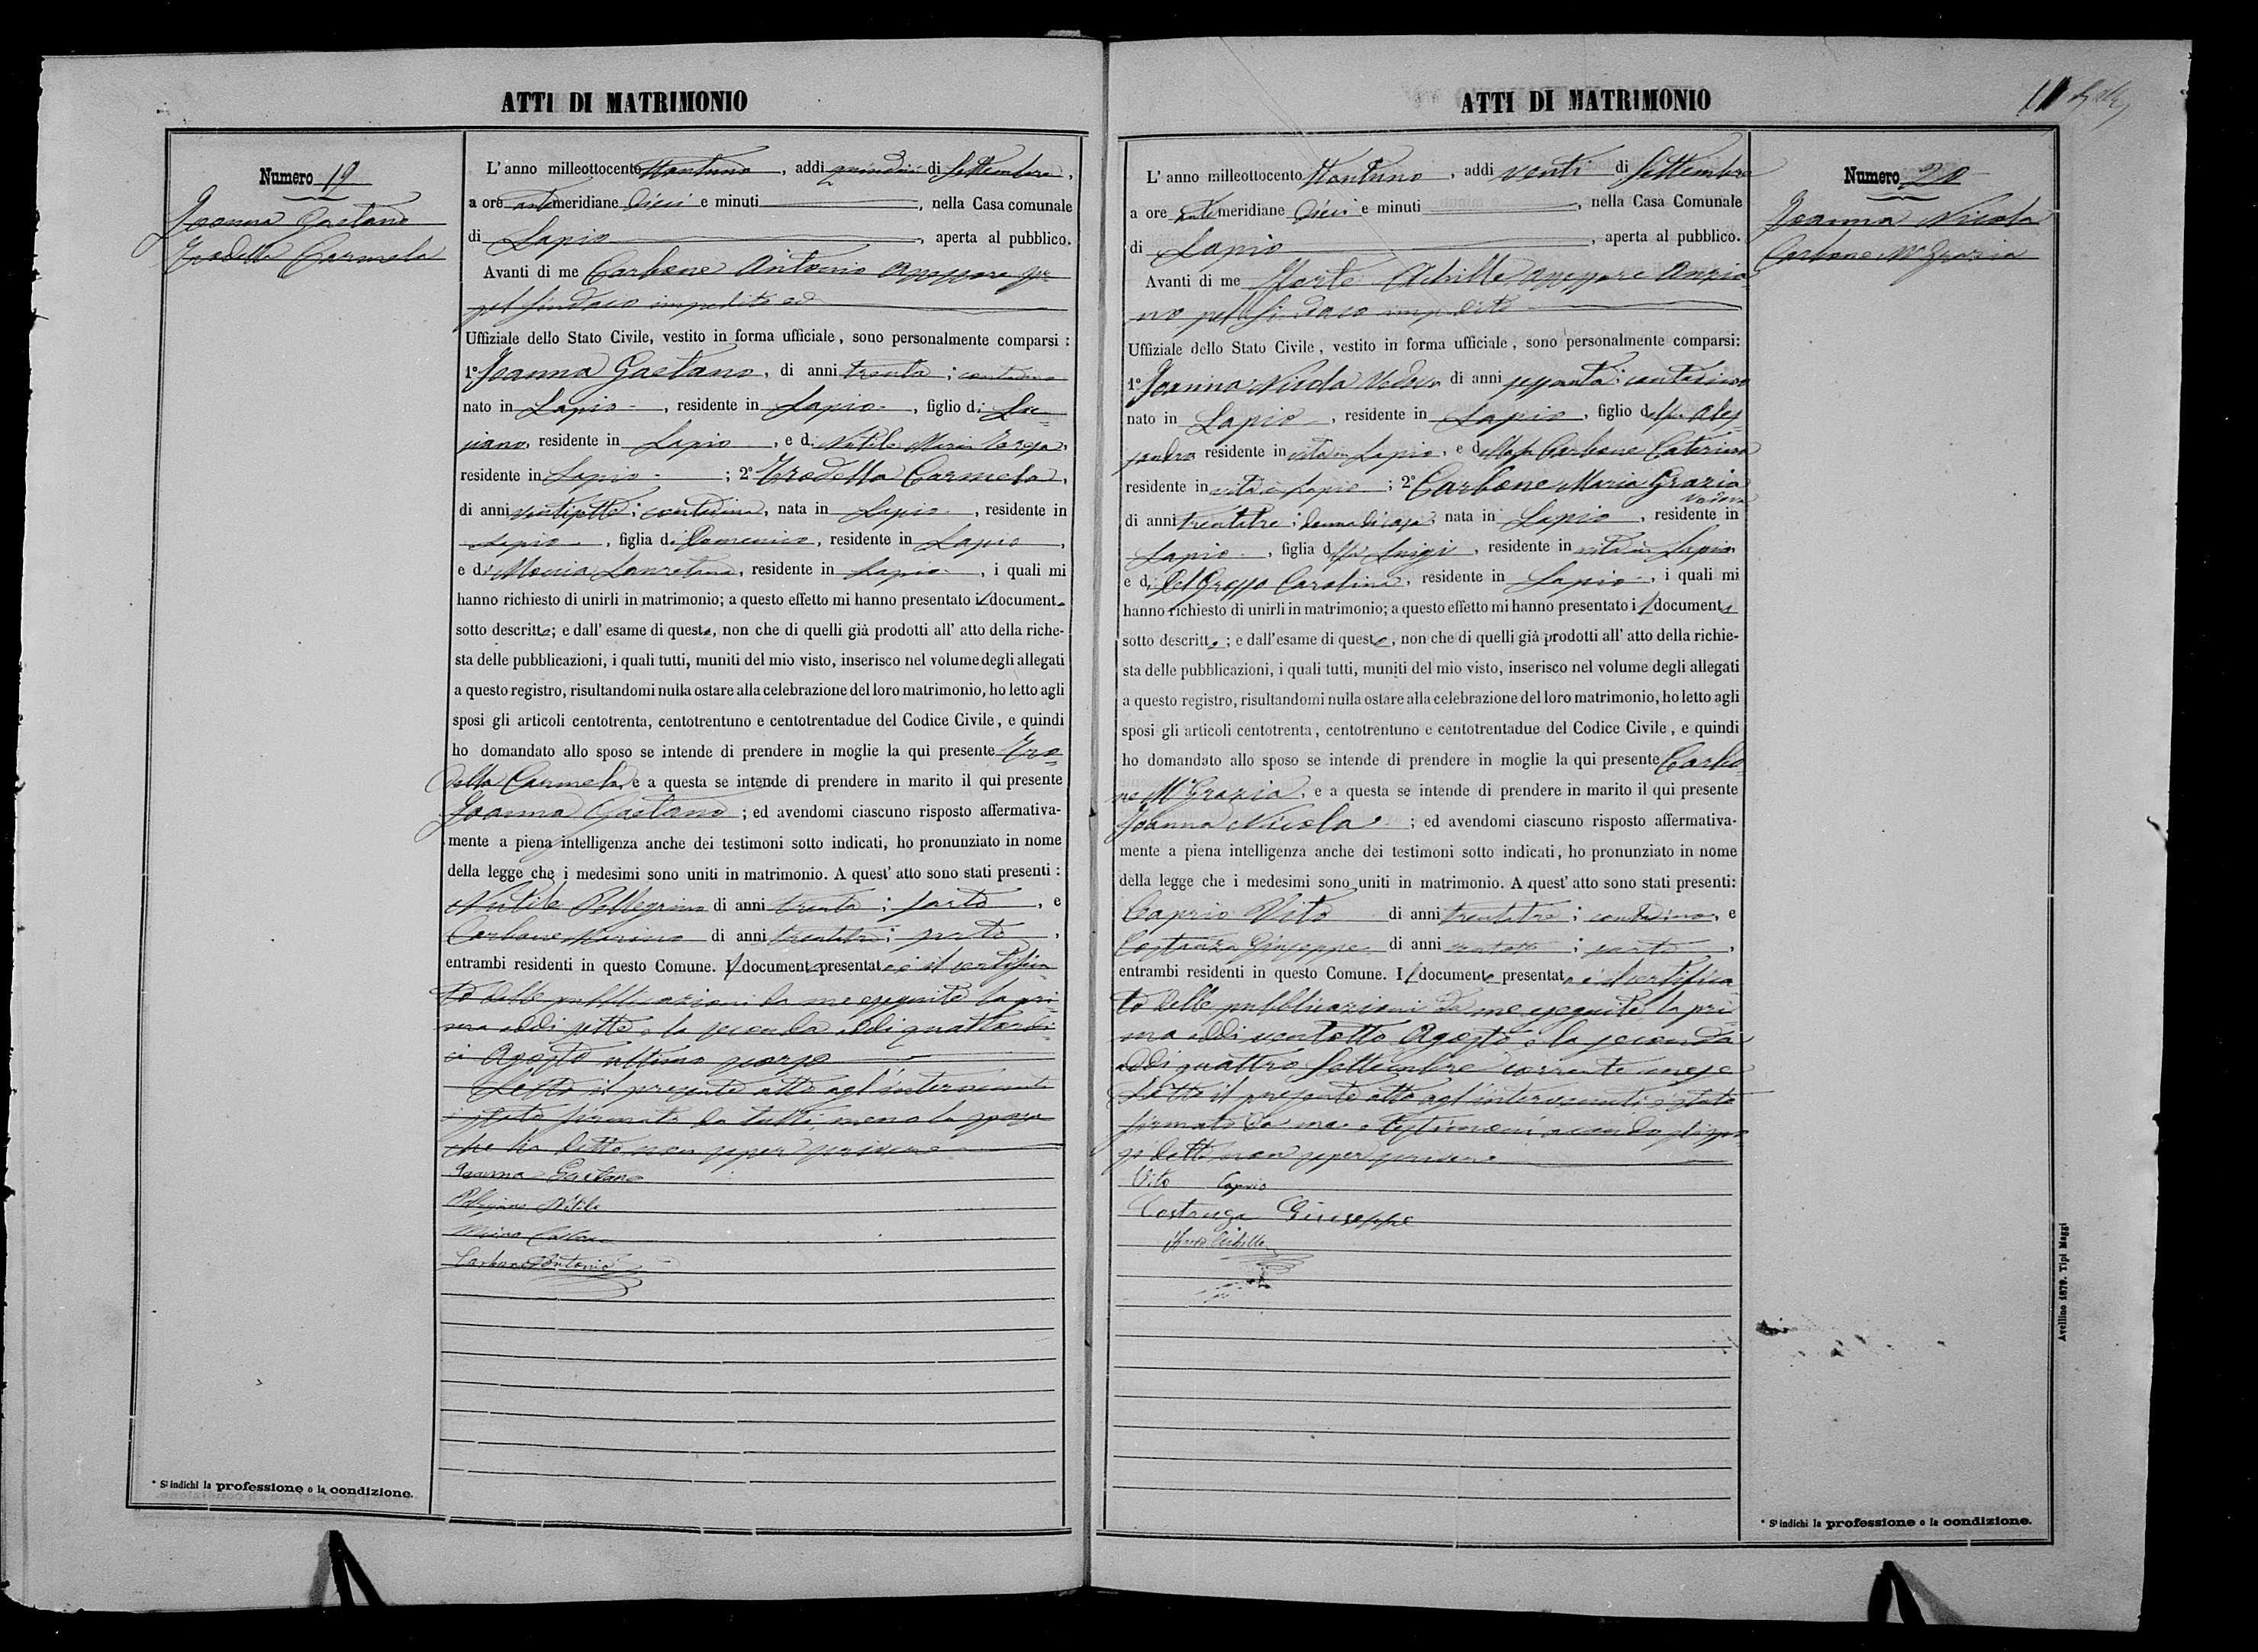 ATTI DI MATRIMONIO
Numero 19
Joanna Gaetano
Trodella Carmela
L'anno milleottocento ottantuno, addì quindici di Settembre,
a ore antimeridiane dieci e minuti, nella Casa comunale
di Lapio, aperta al pubblico.
Avanti di me Carbone Antonio Assessore
pel Sindaco impedito
Uffiziale dello Stato Civile, vestito in forma ufficiale, sono personalmente comparsi:
1° Joanna Gaetano, di anni trenta; contadino
nato in Lapio, residente in Lapio, figlio di Lu=
ciano, residente in Lapio, e di Nitile Maria Teresa,
residente in Lapio; 2° Trodella Carmela,
di anni ventisette; contadina, nata in Lapio, residente in
Lapio, figlia di Domenico, residente in Lapio,
e di Moccia Lauretana, residente in Lapio, i quali mi
hanno richiesto di unirli in matrimonio; a questo effetto mi hanno presentato il documento
sotto descritto; e dall'esame di questo, non che di quelli già prodotti all'atto della riche-
sta delle pubblicazioni, i quali tutti, muniti del mio visto, inserisco nel volume degli allegati
a questo registro, risultandomi nulla ostare alla celebrazione del loro matrimonio, ho letto agli
sposi gli articoli centotrenta, centotrentuno e centotrentadue del Codice Civile, e quindi
ho domandato allo sposo se intende di prendere in moglie la qui presente Tro=
della Carmela, e a questa se intende di prendere in marito il qui presente
Joanna Gaetano; ed avendomi ciascuno risposto affermativa-
mente a piena intelligenza anche dei testimoni sotto indicati, ho pronunziato in nome
della legge che i medesimi sono uniti in matrimonio. A quest'atto sono stati presenti:
Nitile Pellegrino di anni trenta; sarto, e
Carbone Marino di anni trentatre; sarto,
entrambi residenti in questo Comune. Il documento presentato è il certifica
to delle pubblicazioni da me eseguite la pri=
ma addì sette e la seconda addì quattordi=
ci Agosto ultimo scorso
Letto il presente atto agl'intervenuti
è stato firmato da tutti, meno la sposa
che ha detto non saper scrivere
Joanna Gaetano
Pellegrino Nitile
Marino Carbone
Carbone Antonio
* Si indichi la professione o la condizione.
ATTI DI MATRIMONIO
11
Numero 20
Joanna Nicola
Carbone Mª Grazia
L'anno milleottocento ottantuno, addì venti di Settembre
a ore antimeridiane dieci e minuti, nella Casa Comunale
di Lapio, aperta al pubblico.
Avanti di me Forte Achille, assessore Anzia
no pel Sindaco impedito
Uffiziale dello Stato Civile, vestito in forma ufficiale, sono personalmente comparsi:
1° Joanna Nicola Vedovo di anni sessanta; contadino
nato in Lapio, residente in Lapio, figlio del fu Ales=
sandro, residente in vita in Lapio, e della fu Carbone Caterina
residente in vita in Lapio; 2° Carbone Maria Grazia
Vedova
di anni trentatre; donna di casa, nata in Lapio, residente in
Lapio, figlia del fu Luigi, residente in vita in Lapio
e di Del Grosso Carolina, residente in Lapio, i quali mi
hanno richiesto di unirli in matrimonio; a questo effetto mi hanno presentato il documento
sotto descritto; e dall'esame di questo, non che di quelli già prodotti all'atto della richie-
sta delle pubblicazioni, i quali tutti, muniti del mio visto, inserisco nel volume degli allegati
a questo registro, risultandomi nulla ostare alla celebrazione del loro matrimonio, ho letto agli
sposi gli articoli centotrenta, centotrentuno e centotrentadue del Codice Civile, e quindi
ho domandato allo sposo se intende di prendere in moglie la qui presente Carbo=
ne Mª Grazia, e a questa se intende di prendere in marito il qui presente
Joanna Nicola; ed avendomi ciascuno risposto affermativa-
mente a piena intelligenza anche dei testimoni sotto indicati, ho pronunziato in nome
della legge che i medesimi sono uniti in matrimonio. A quest'atto sono stati presenti:
Caprio Vito di anni trentatre; contadino, e
Costanza Giuseppe di anni ventotto; sarto,
entrambi residenti in questo Comune. Il documento presentato è il certifica
to delle pubblicazioni da me eseguite la pri=
ma addì ventotto Agosto e la seconda
addì quattro Settembre corrente mese
Letto il presente atto agl'intervenuti è stato
firmato da me e testimoni, avendo gli spo
si detto non saper scrivere
Vito Caprio
Costanza Giuseppe
Forte Achille
Avellino 1879. Tipi Maggi
* Si indichi la professione o la condizione.